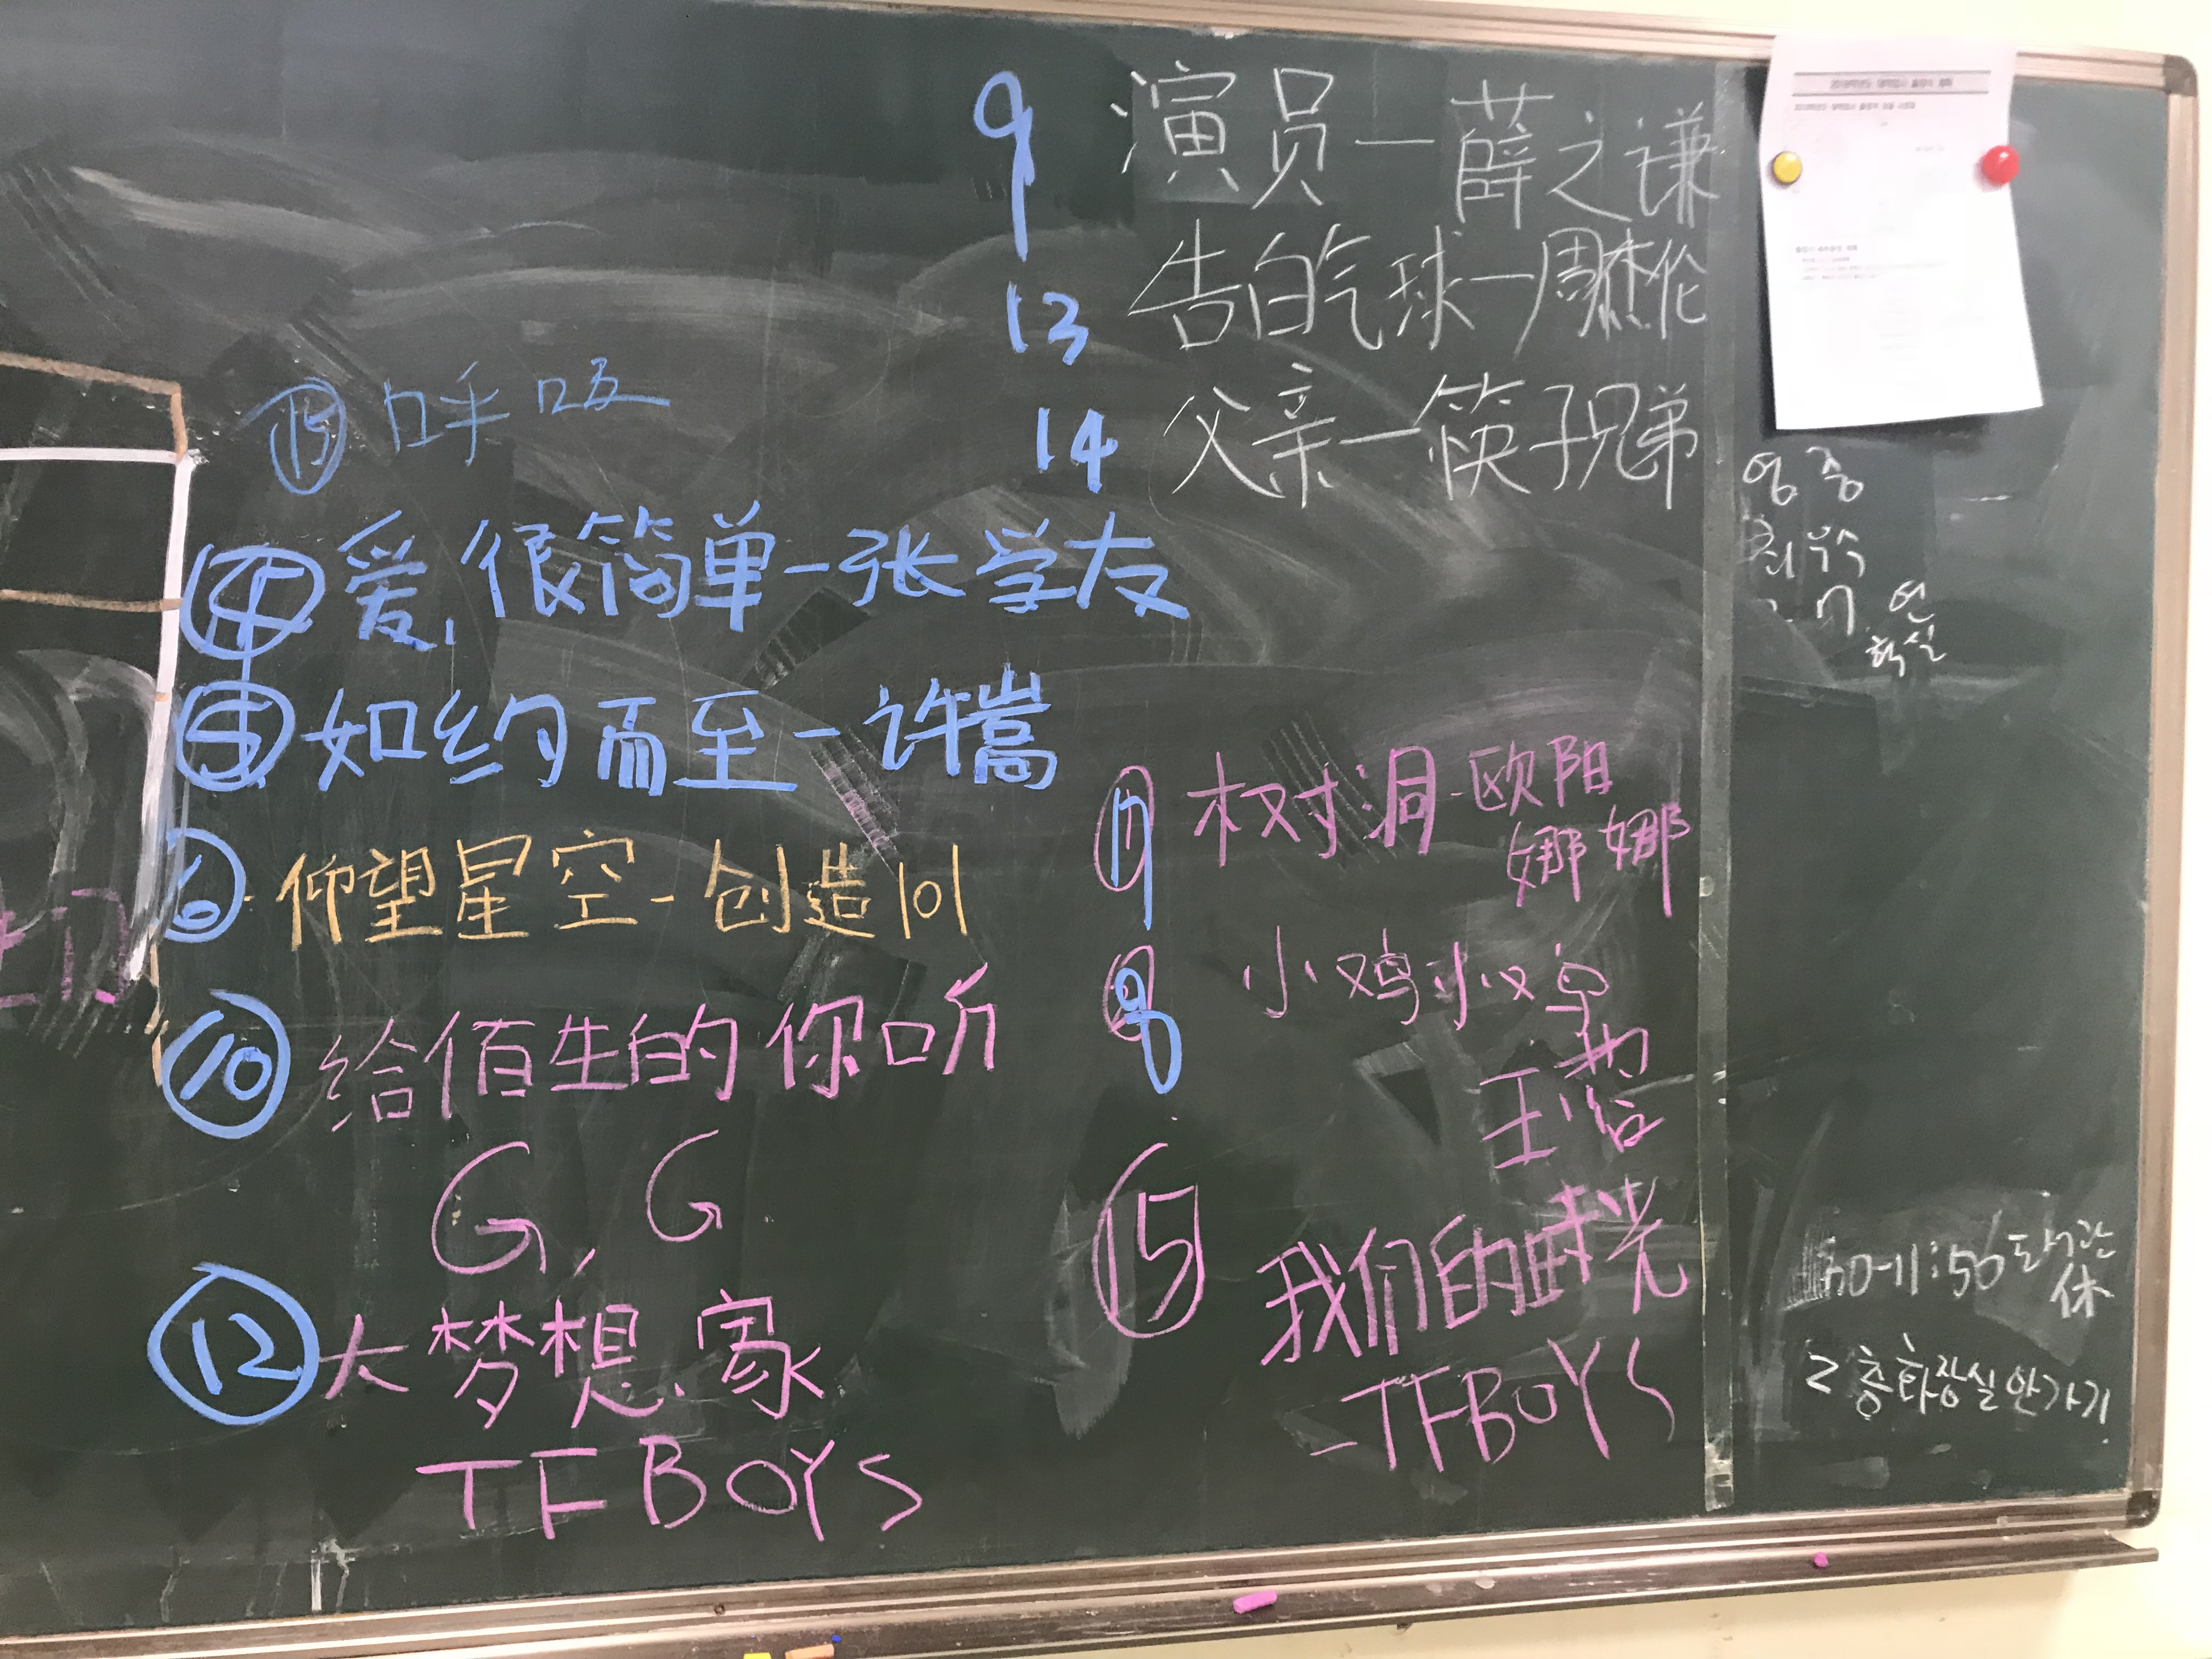 9 演员－薛之谦
13 告白气球－周杰伦
14 父亲－筷子兄弟
⑮ 呼吸
④ 爱,很简单－张学友
⑤ 如约而至－许嵩
⑥ 仰望星空－创造101
⑩ 给佰生的你听
G,G
⑫ 大梦想家
TFBOYS
树洞-欧阳
娜娜
小鸡小鸡
王蓉
⑮ 我们的时光
-TFBOYS
연
학실
1:50 도서관
休
2층화장실안가기